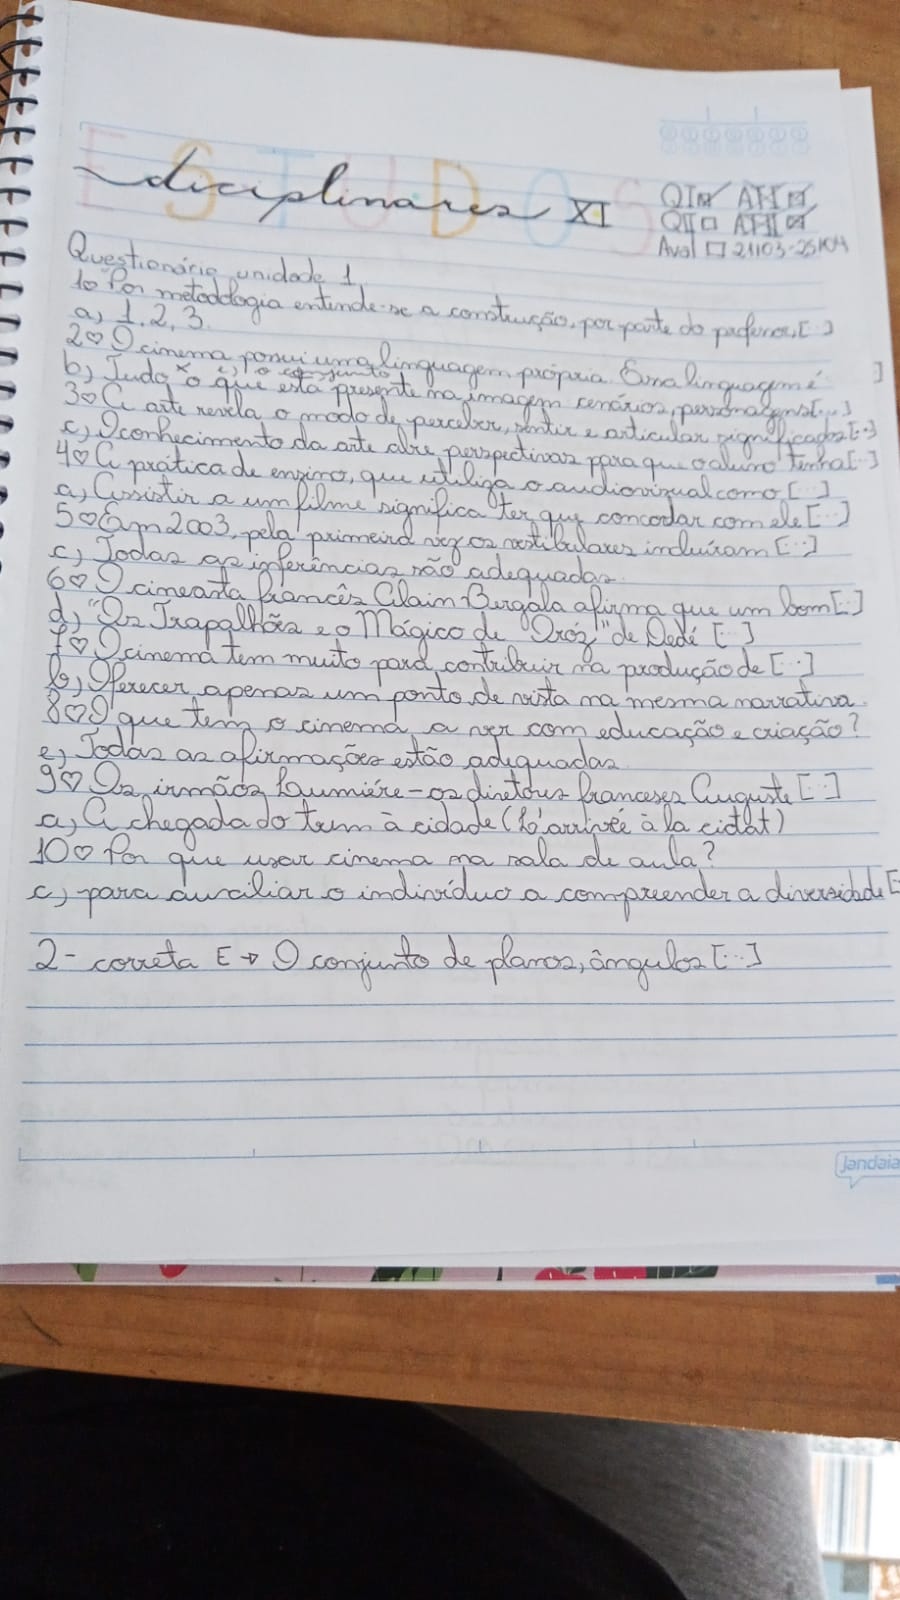 ESTUDOS
diciplinares XI
QI ATI
QII ATII
Aval 21/03-25/04
Questionário unidade 1
1♡ Por metodologia entende-se a construção, por parte do professor, [..]
a) 1, 2, 3.
2♡ O cinema possui uma linguagem própria. Essa linguagem é ]
e) o conjunto
b) Tudo o que está presente na imagem cenários, personagens [...]
3♡ A arte revela o modo de perceber, sentir e articular significados [..]
c) O conhecimento da arte abre perspectivas para que o aluno tenha [..]
4♡ A prática de ensino, que utiliza o audiovizual como [..]
a) Assistir a um filme significa ter que concordar com ele [..]
5♡ Em 2003, pela primeira vez os vestibulares incluíram [..]
c) Todas as inferências são adequadas.
6♡ O cineasta francês Alain Bergala afirma que um bom [..]
d) "Os Trapalhões e o Mágico de Oróz" de Dedé [..]
7♡ O cinema tem muito para contribuir na produção de [..]
b) Oferecer apenas um ponto de vista na mesma narrativa.
8♡ O que tem o cinema a ver com educação e criação?
e) Todas as afirmações estão adequadas.
9♡ Os irmãos Laumiére - os diretores franceses Auguste [..]
a) A chegada do trem à cidade (Là arrivée à la ciotat)
10♡ Por que usar cinema na sala de aula?
c) para auxiliar o indivíduo a compreender a diversidade [
2- correta E → O conjunto de planos, ângulos [..]
Jandaia